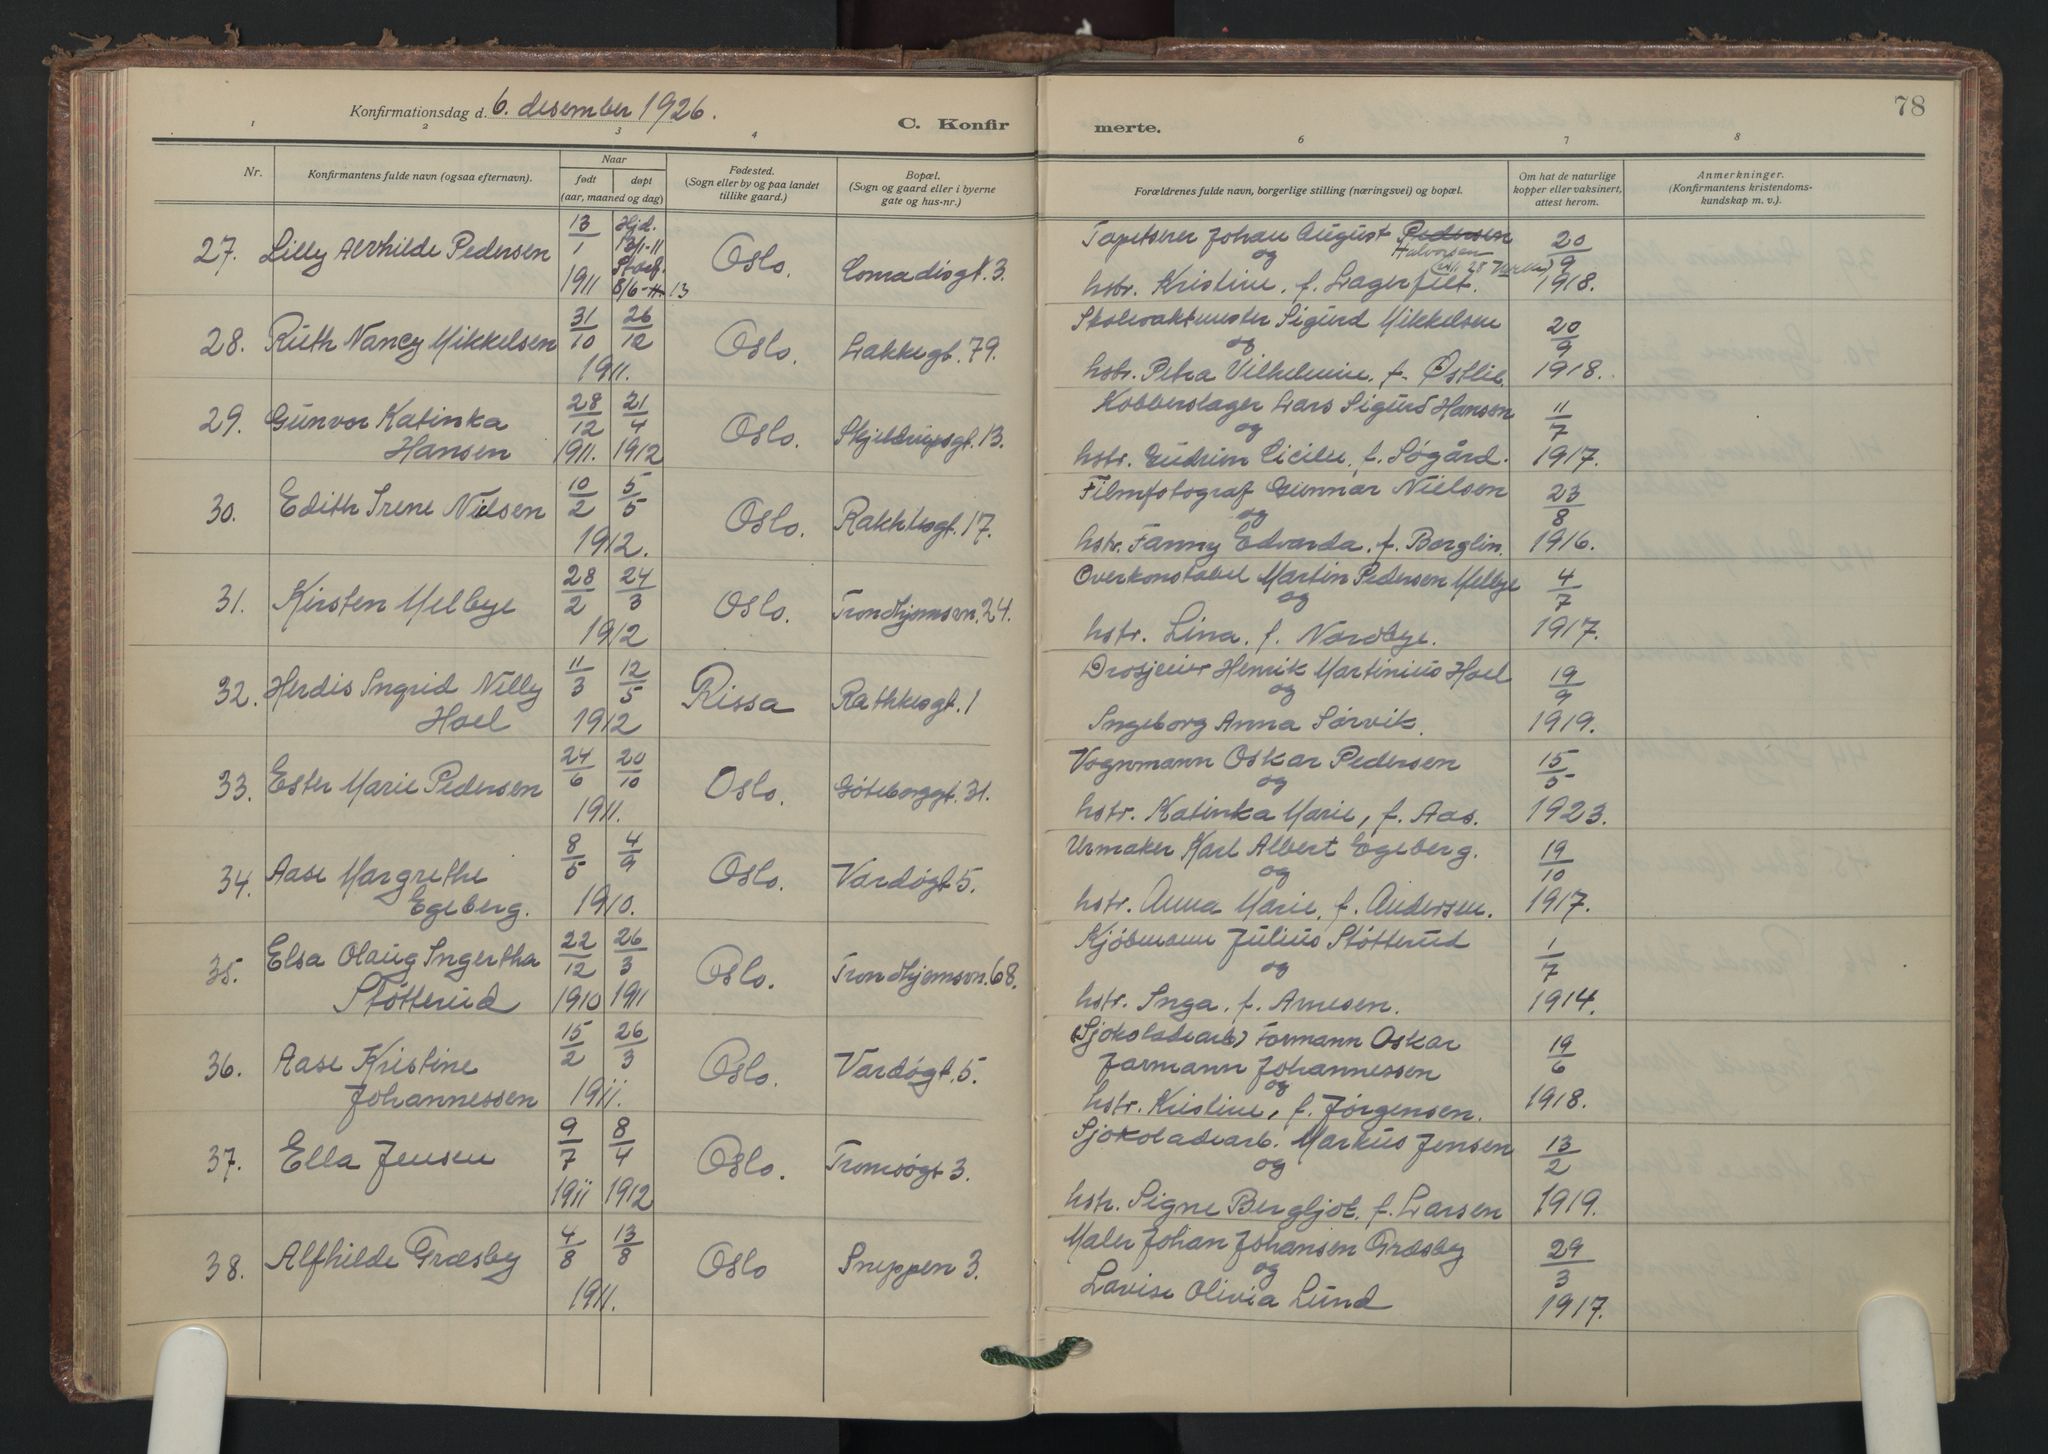 78
Konfirmationsdag d. 6. desember 1926.
C. Konfir merte.
1 2 3 4 6 7 8
Nr.
Konfirmantens fulde navn (ogsaa efternavn).
Naar
født døpt
(aar, maaned og dag)
Fødested.
(Sogn eller by og paa landet
tillike gaard.)
Bopæl.
(Sogn og gaard eller i byerne
gate og hus-nr.)
Forældrenes fulde navn, borgerlige stilling (næringsvei) og bopæl.
Om hat de naturlige
kopper eller vaksinert,
attest herom.
Anmerkninger.
(Konfirmantens kristendoms-
kundskap m. v.).
27. Lilly Alvhilde Pedersen 13/1 1911 Hjd. 13/1-11 8/6-13 Oslo. 3. Tapetserer Johan August Pedersen Halvorsen
og
hstr. Kristine, f. Lagerfelt. 20/9 1918.
28. Ruth Nancy Mikkelsen 31/10 26/12 1911. Oslo. Lakkegt. 79. Skolevaktmester Sigurd Mikkelsen
og
hstr. Petra Vilhelmine, f. Østlie. 20/9 1918.
29. Gunvor Katinka
Hansen 28/12 1911. 21/4 1912 Oslo. Skjeldrupsgt. 13. Kobberslager Lars Sigurd Hansen
og
hstr. Gudrun Cicilie, f. Søgård. 11/7 1917.
30. Edith Irene Nielsen 10/2 5/5 1912. Oslo. Rakkesgt. 17. Filmfotograf Gunnar Nielsen
og
hstr. Fanny Edvarda, f. Berglin. 23/8 1916.
31. Kirsten Melbye 28/2 24/3 1912 Oslo. Trondhjemsvn. 24. Overkonstabel Martin Pedersen Melbye
og
hstr. Lina, f. Nordbye. 4/7 1917.
32. Herdis Ingrid Nelly
Hoel 11/3 12/5 1912 Rissa Rathkesgt. 1 Drosjeeier Henrik Martinius Hoel
og
Ingeborg Anna Sørvik. 19/9 1919.
33. Ester Marie Pedersen 24/6 20/10 1911. Oslo. Gøteborggt. 31. Vognmann Oskar Pedersen
og
hstr. Katinka Marie, f. Aas. 15/5 1923.
34. Aase Margrethe
Egeberg. 8/5 4/9 1910. Oslo. Vardøgt 5. Urmaker Karl Albert Egeberg.
og
hstr. Anna Marie, f. Andersen. 19/10 1917.
35. Elsa Olaug Ingertha
Støtterud 22/12 1910 26/3 1911 Oslo. Trondhjemsvn. 68. Kjøbmann Julius Støtterud
og
hstr. Inga, f. Arnesen. 1/7 1914.
36. Aase Kristine
Johannessen 15/2 26/3 1911. Oslo. Vardøgt. 5. (Sjokoladearb) Formann Oskar
Jarmann Johannessen
og
hstr. Kristine, f. Jørgensen. 19/6 1918.
37. Ella Jensen 9/7 1911 8/4 1912 Oslo. Tromsøgt 3. Sjokoladearb. Markus Jensen
og
hstr. Signe Bergljot, f. Larsen 13/2 1919.
38. Alfhilde Græsby 4/8 13/8 1911. Oslo Sneppen 3. Maler Johan Johansen Græsby
og
Lovise Olivia Lund 29/3 1917.